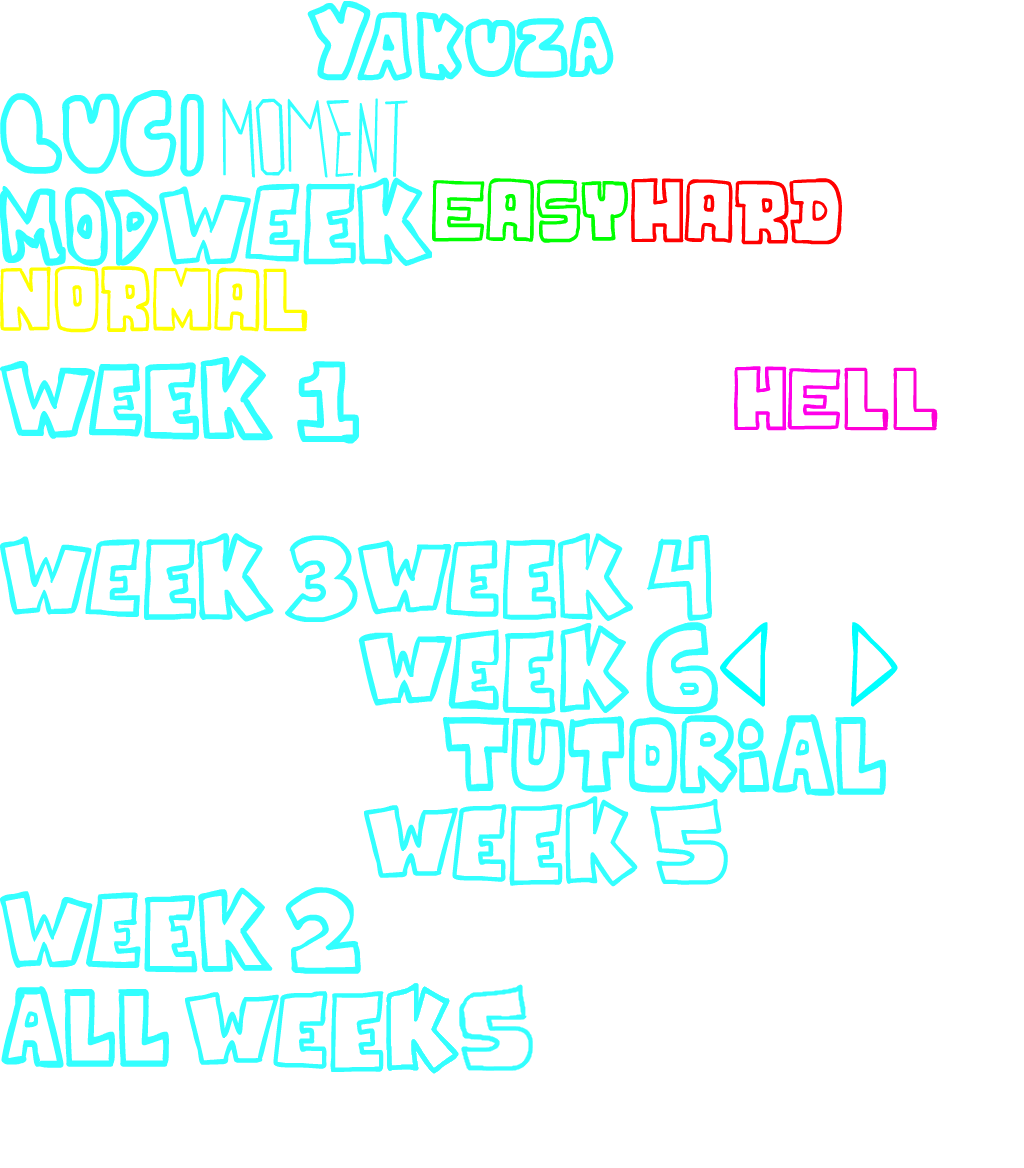 YAKUZA
LUCI MOMENT
MODWEEK EASY HARD
NORMAL
WEEK 1 HELL
WEEK 3 WEEK 4
WEEK 6
TUTORiAL
WEEK 5
WEEK 2
ALL WEEKS